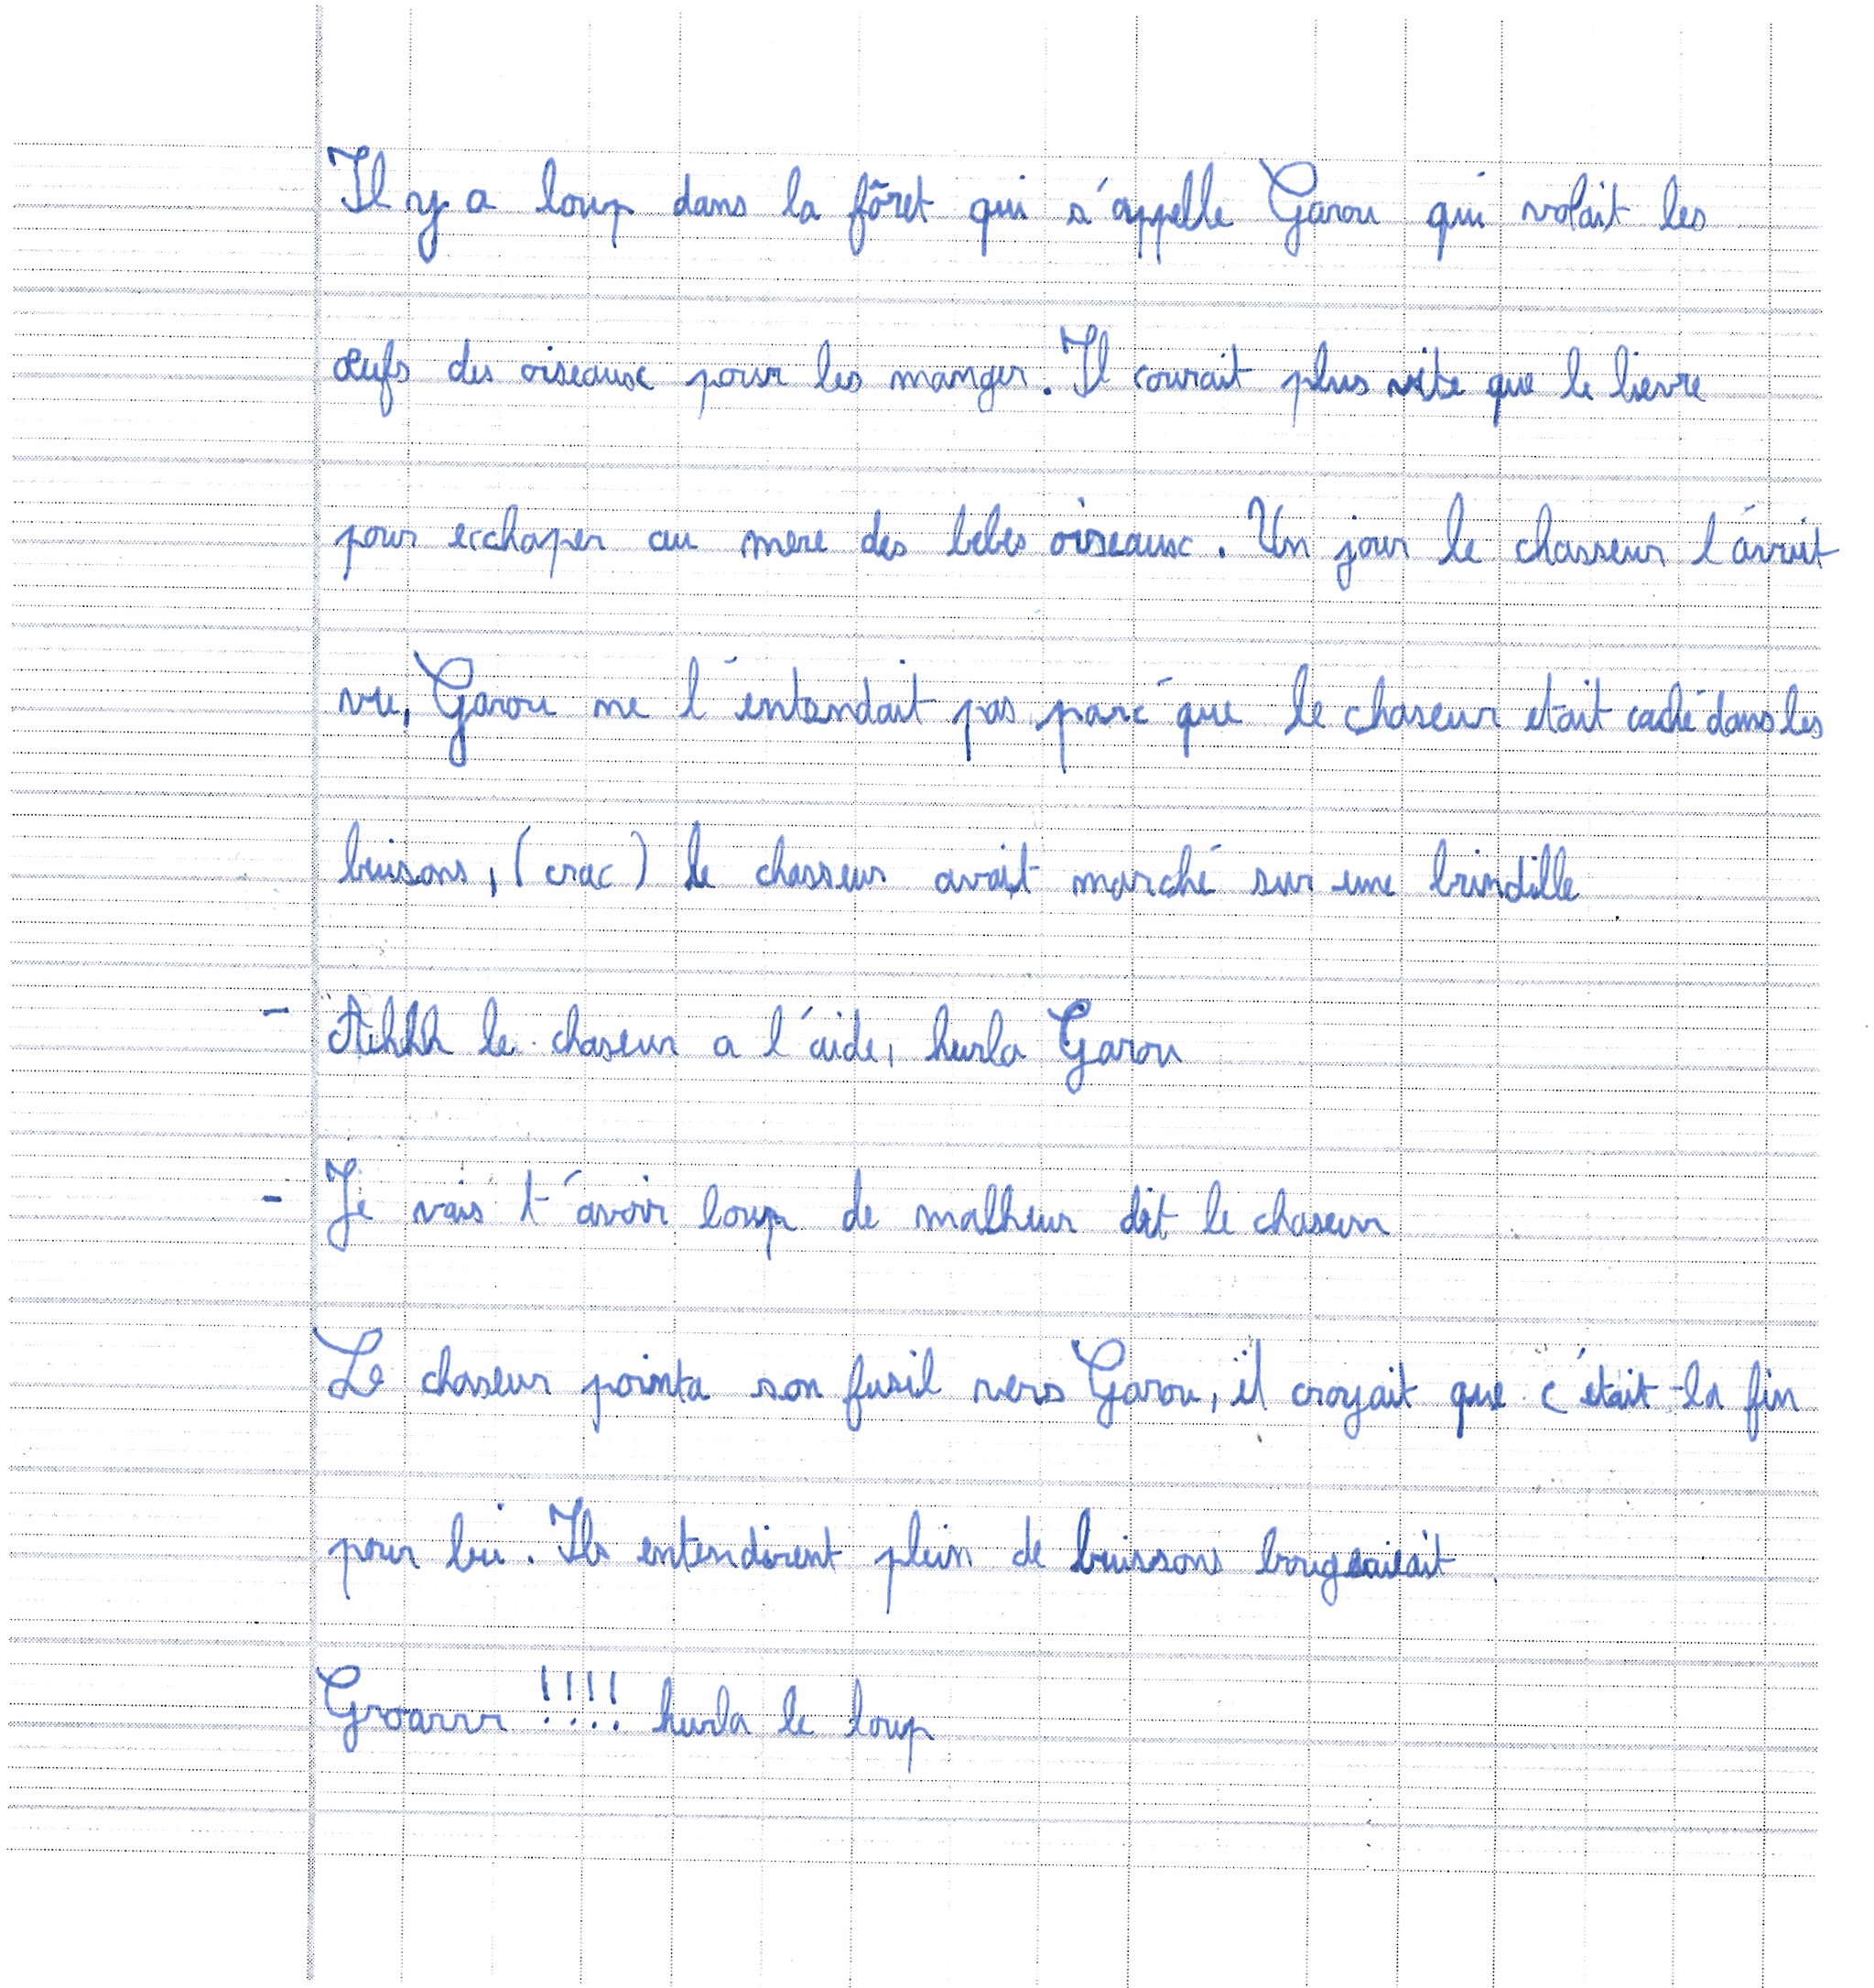 Il y a loup dans la fôret qui s'appelle Garou qui volait les
œufs des oiseaux pour les manger. Il courait plus vite que le lievre
pour ecchaper au mere des bebes oiseaux. Un jour le chasseur l'avait
vu, Garou ne l'entendait pas parc'que le chaseur etait caché dans les
buisons, (crac) le chasseur avait marché sur une brindille
- Ahhh le chaseur a l'aide, hurla Garou
- Je vais t'avoir loup de malheur dit le chaseur
Le chaseur pointa son fusil vers Garou, il croyait que c'était la fin
pour lui. Ils entendirent plein de buissons
Groarrr !!!! hurla le loup